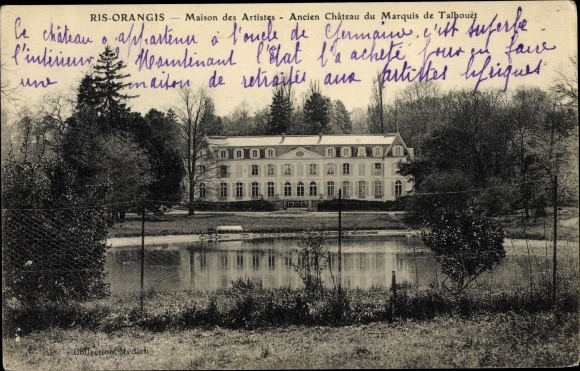 RIS-ORANGIS — Maison des Artistes - Ancien Château du Marquis de Talhouët
Ce château a appartenu à l'oncle de Germaine, c'est superbe
l'intérieur. Maintenant l'État l'a acheté pour en faire
une maison de retraites aux artistes lyriques
Collection Médich